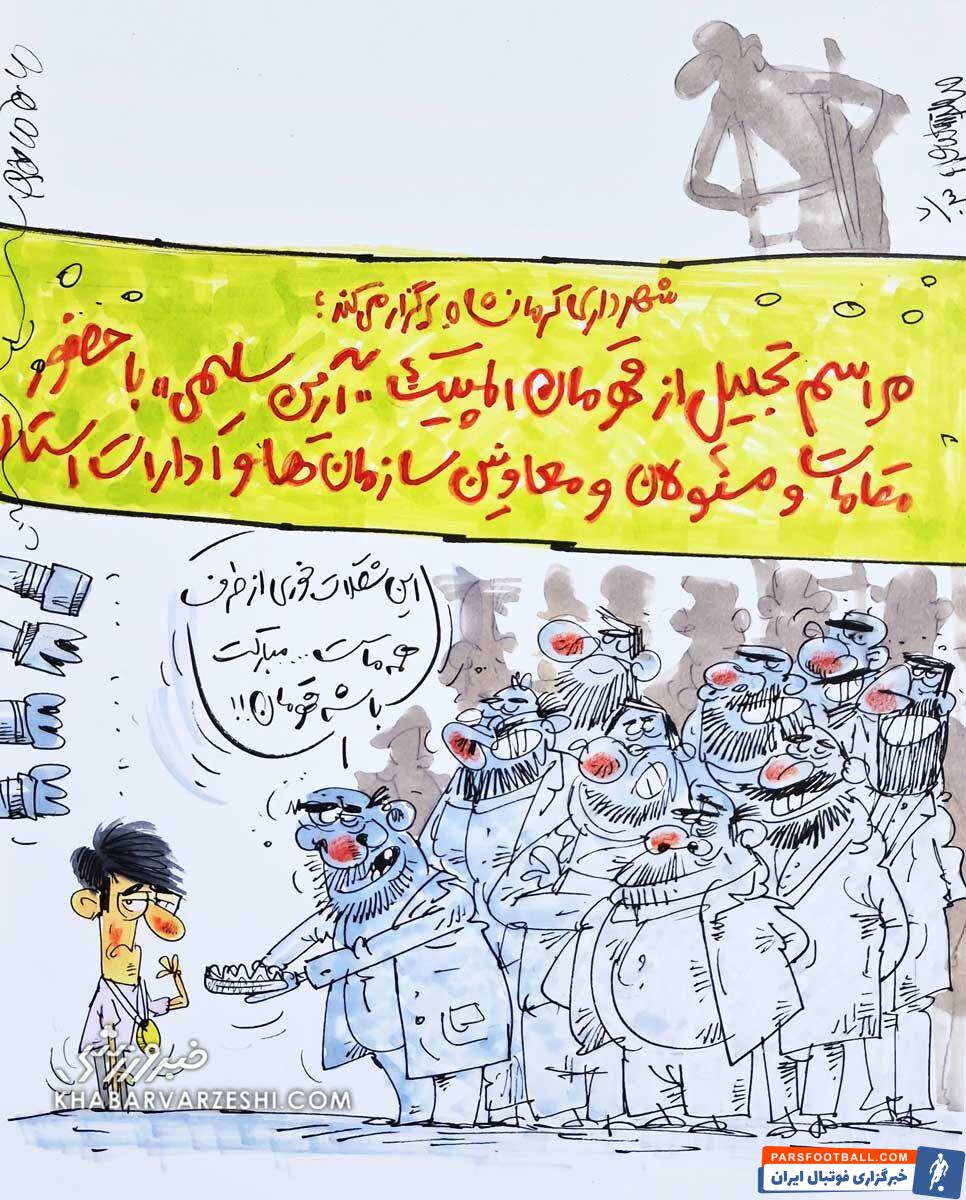 شهرداری کرمانشاه برگزار می‌کند؛
مراسم تجلیل از قهرمان المپیک "آرین سلیمی" با حضور
مقامات و مسئولان و معاونین سازمان‌ها و ادارات استان
این شکلات خوری از طرف
همه ماست... مبارکت
باشه قهرمان!!
خبرورزشی
KHABARVARZESHI.COM
PARSFOOTBALL.COM
خبرگزاری فوتبال ایران